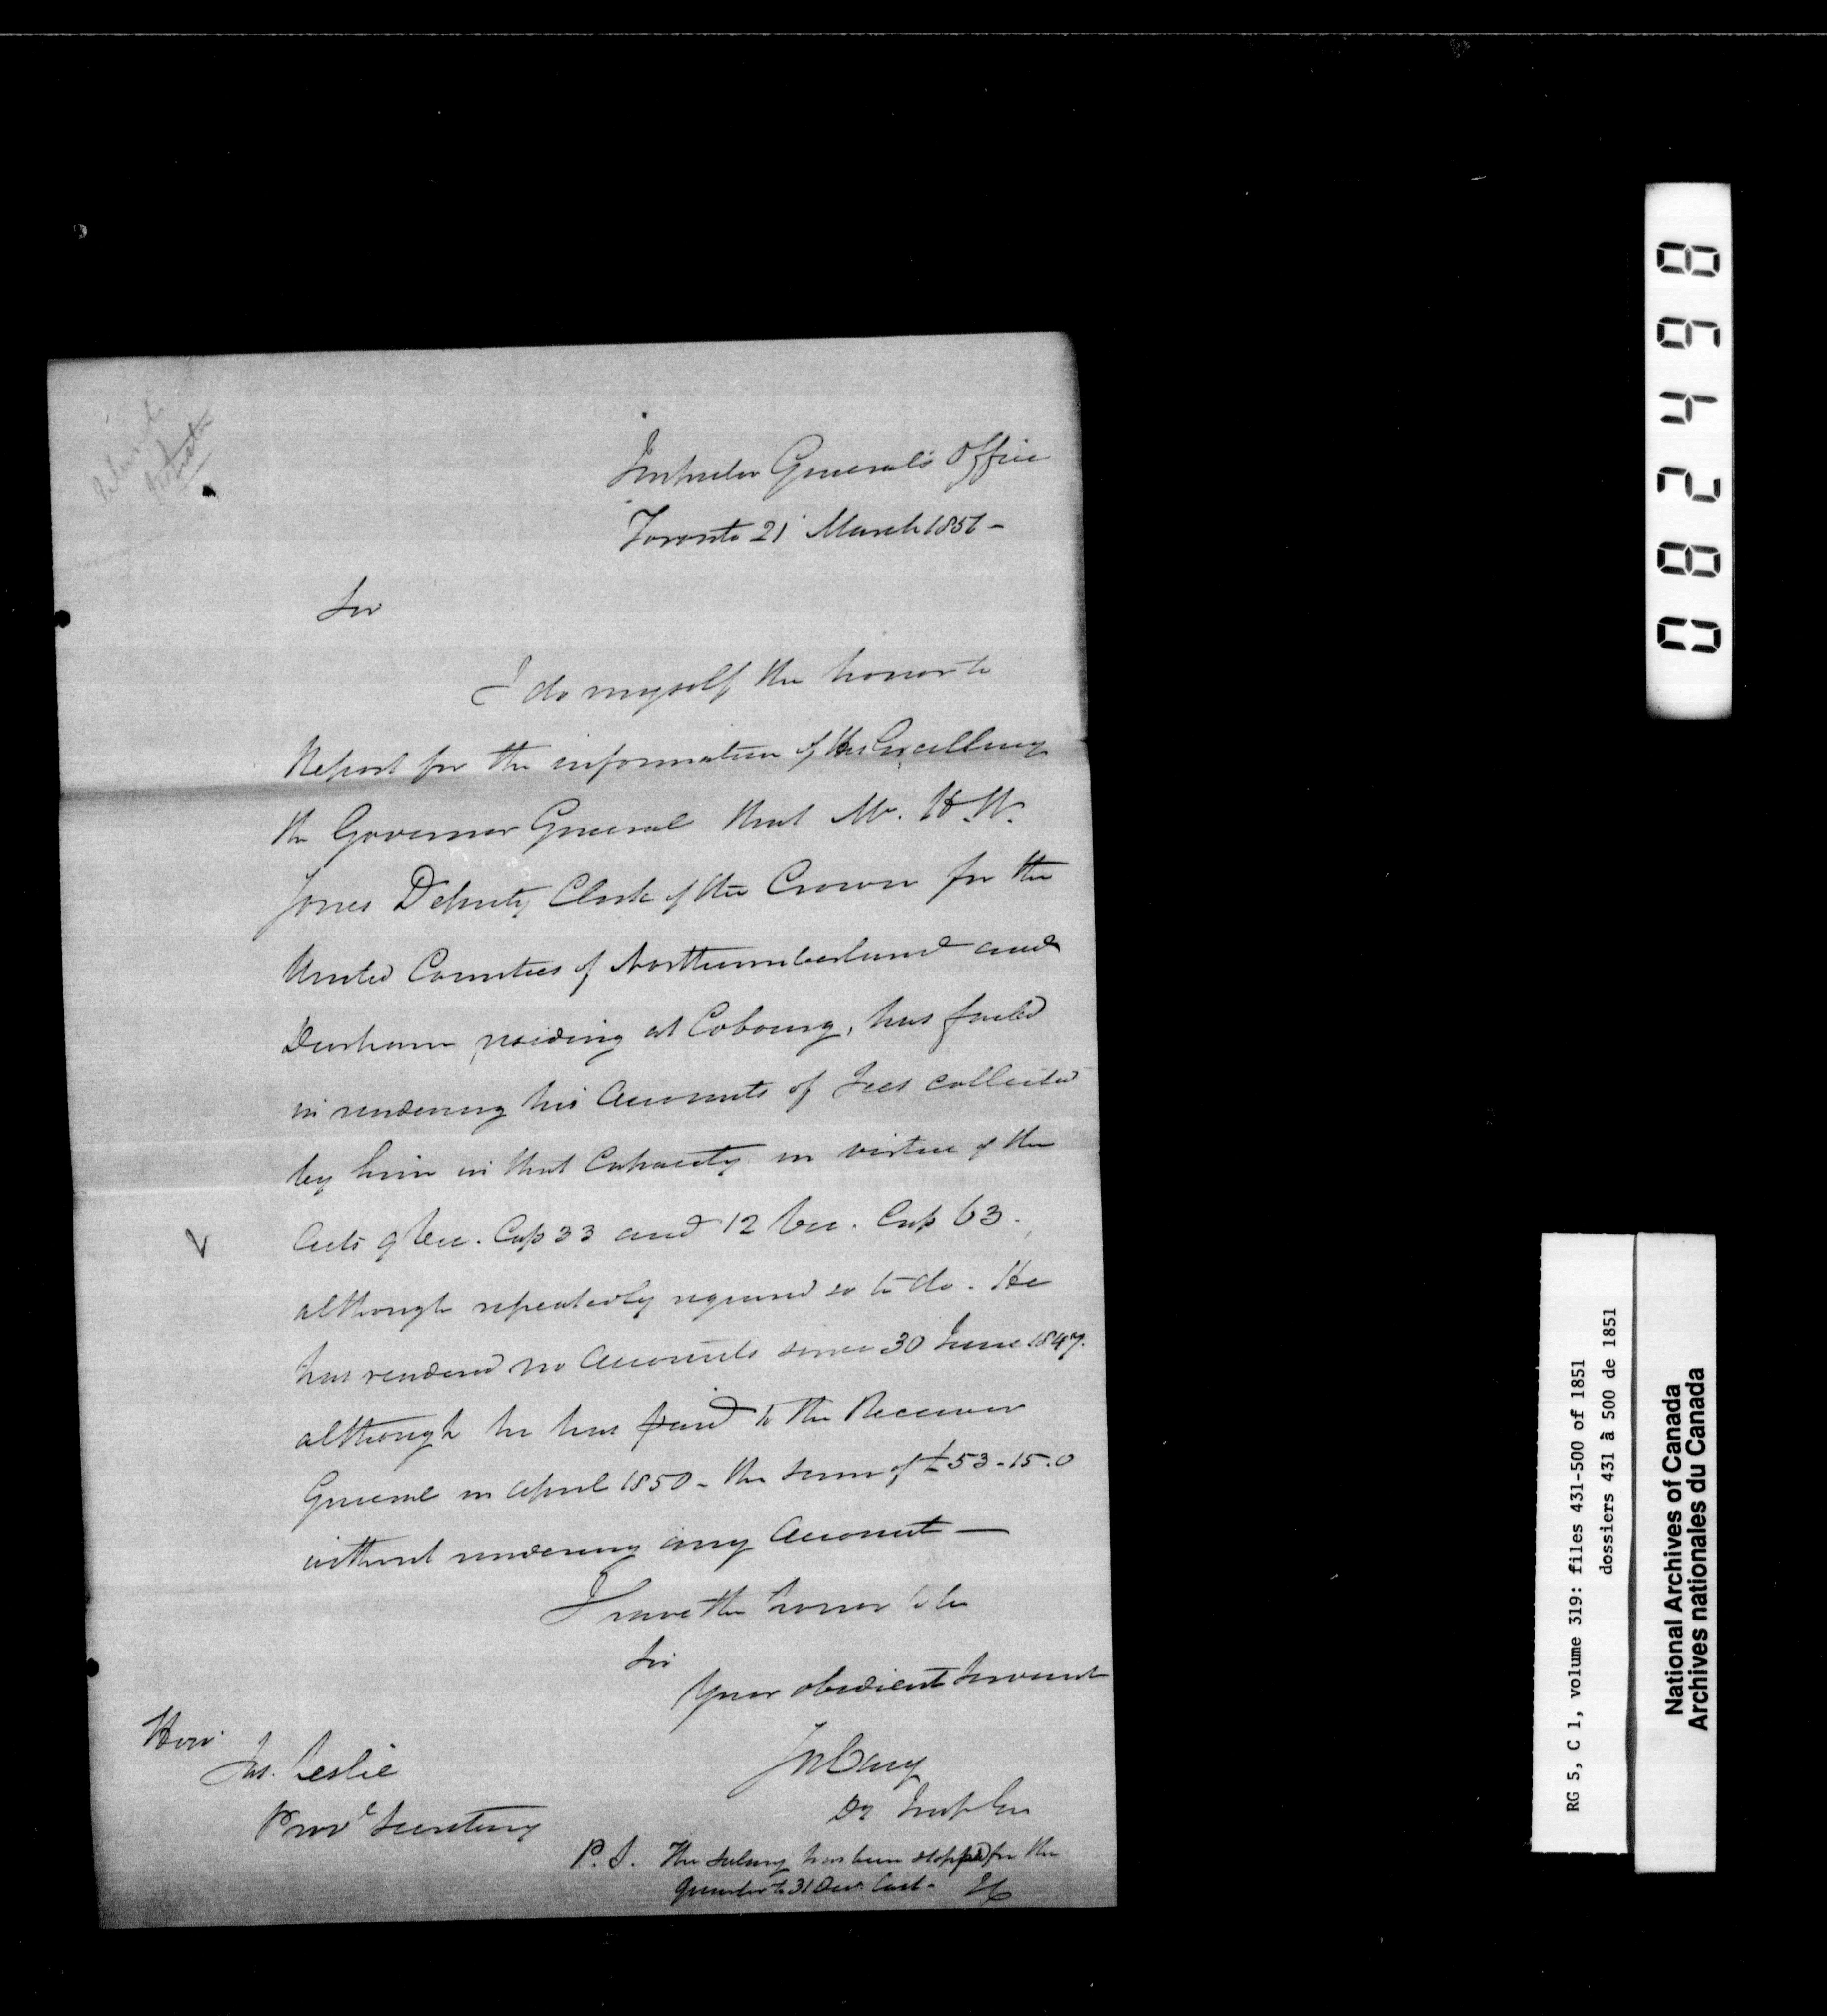 Inspector General's Office
Toronto 21 March 1851 -
Sir
I do myself the honor to
Report for the information of His Excellency
the Governor General that Mr. H. W.
Jones Deputy Clerk of the Crown for the
United Counties of Northumberland and
Durham, residing at Cobourg, has failed
in rendering his Accounts of Fees collected
by him in that Capacity in virtue of the
Acts 9 Vic. Cap 33 and 12 Vic. Cap 63.
although repeatedly required so to do. He
has rendered no Accounts since 30 June 1849.
although he has paid to the Receiver
General in April 1850 - the sum of £53-15.0
without rendering any Account —
I have the honor to be
Sir
Your obedient Servant
Jos Cary
Dy Insp Gen
Hon
Jas. Leslie
Provl Secretary
P.S. The salary has been stopped for the
quarter to 31 Decr last - JC
082498
RG 5, C 1, volume 319: files 431-500 of 1851
dossiers 431 à 500 de 1851
National Archives of Canada
Archives nationales du Canada